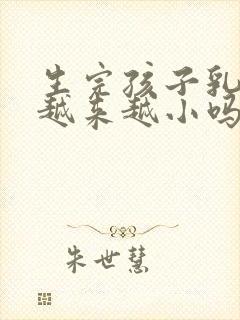 生完孩子乳
越来越小吗
朱世慧